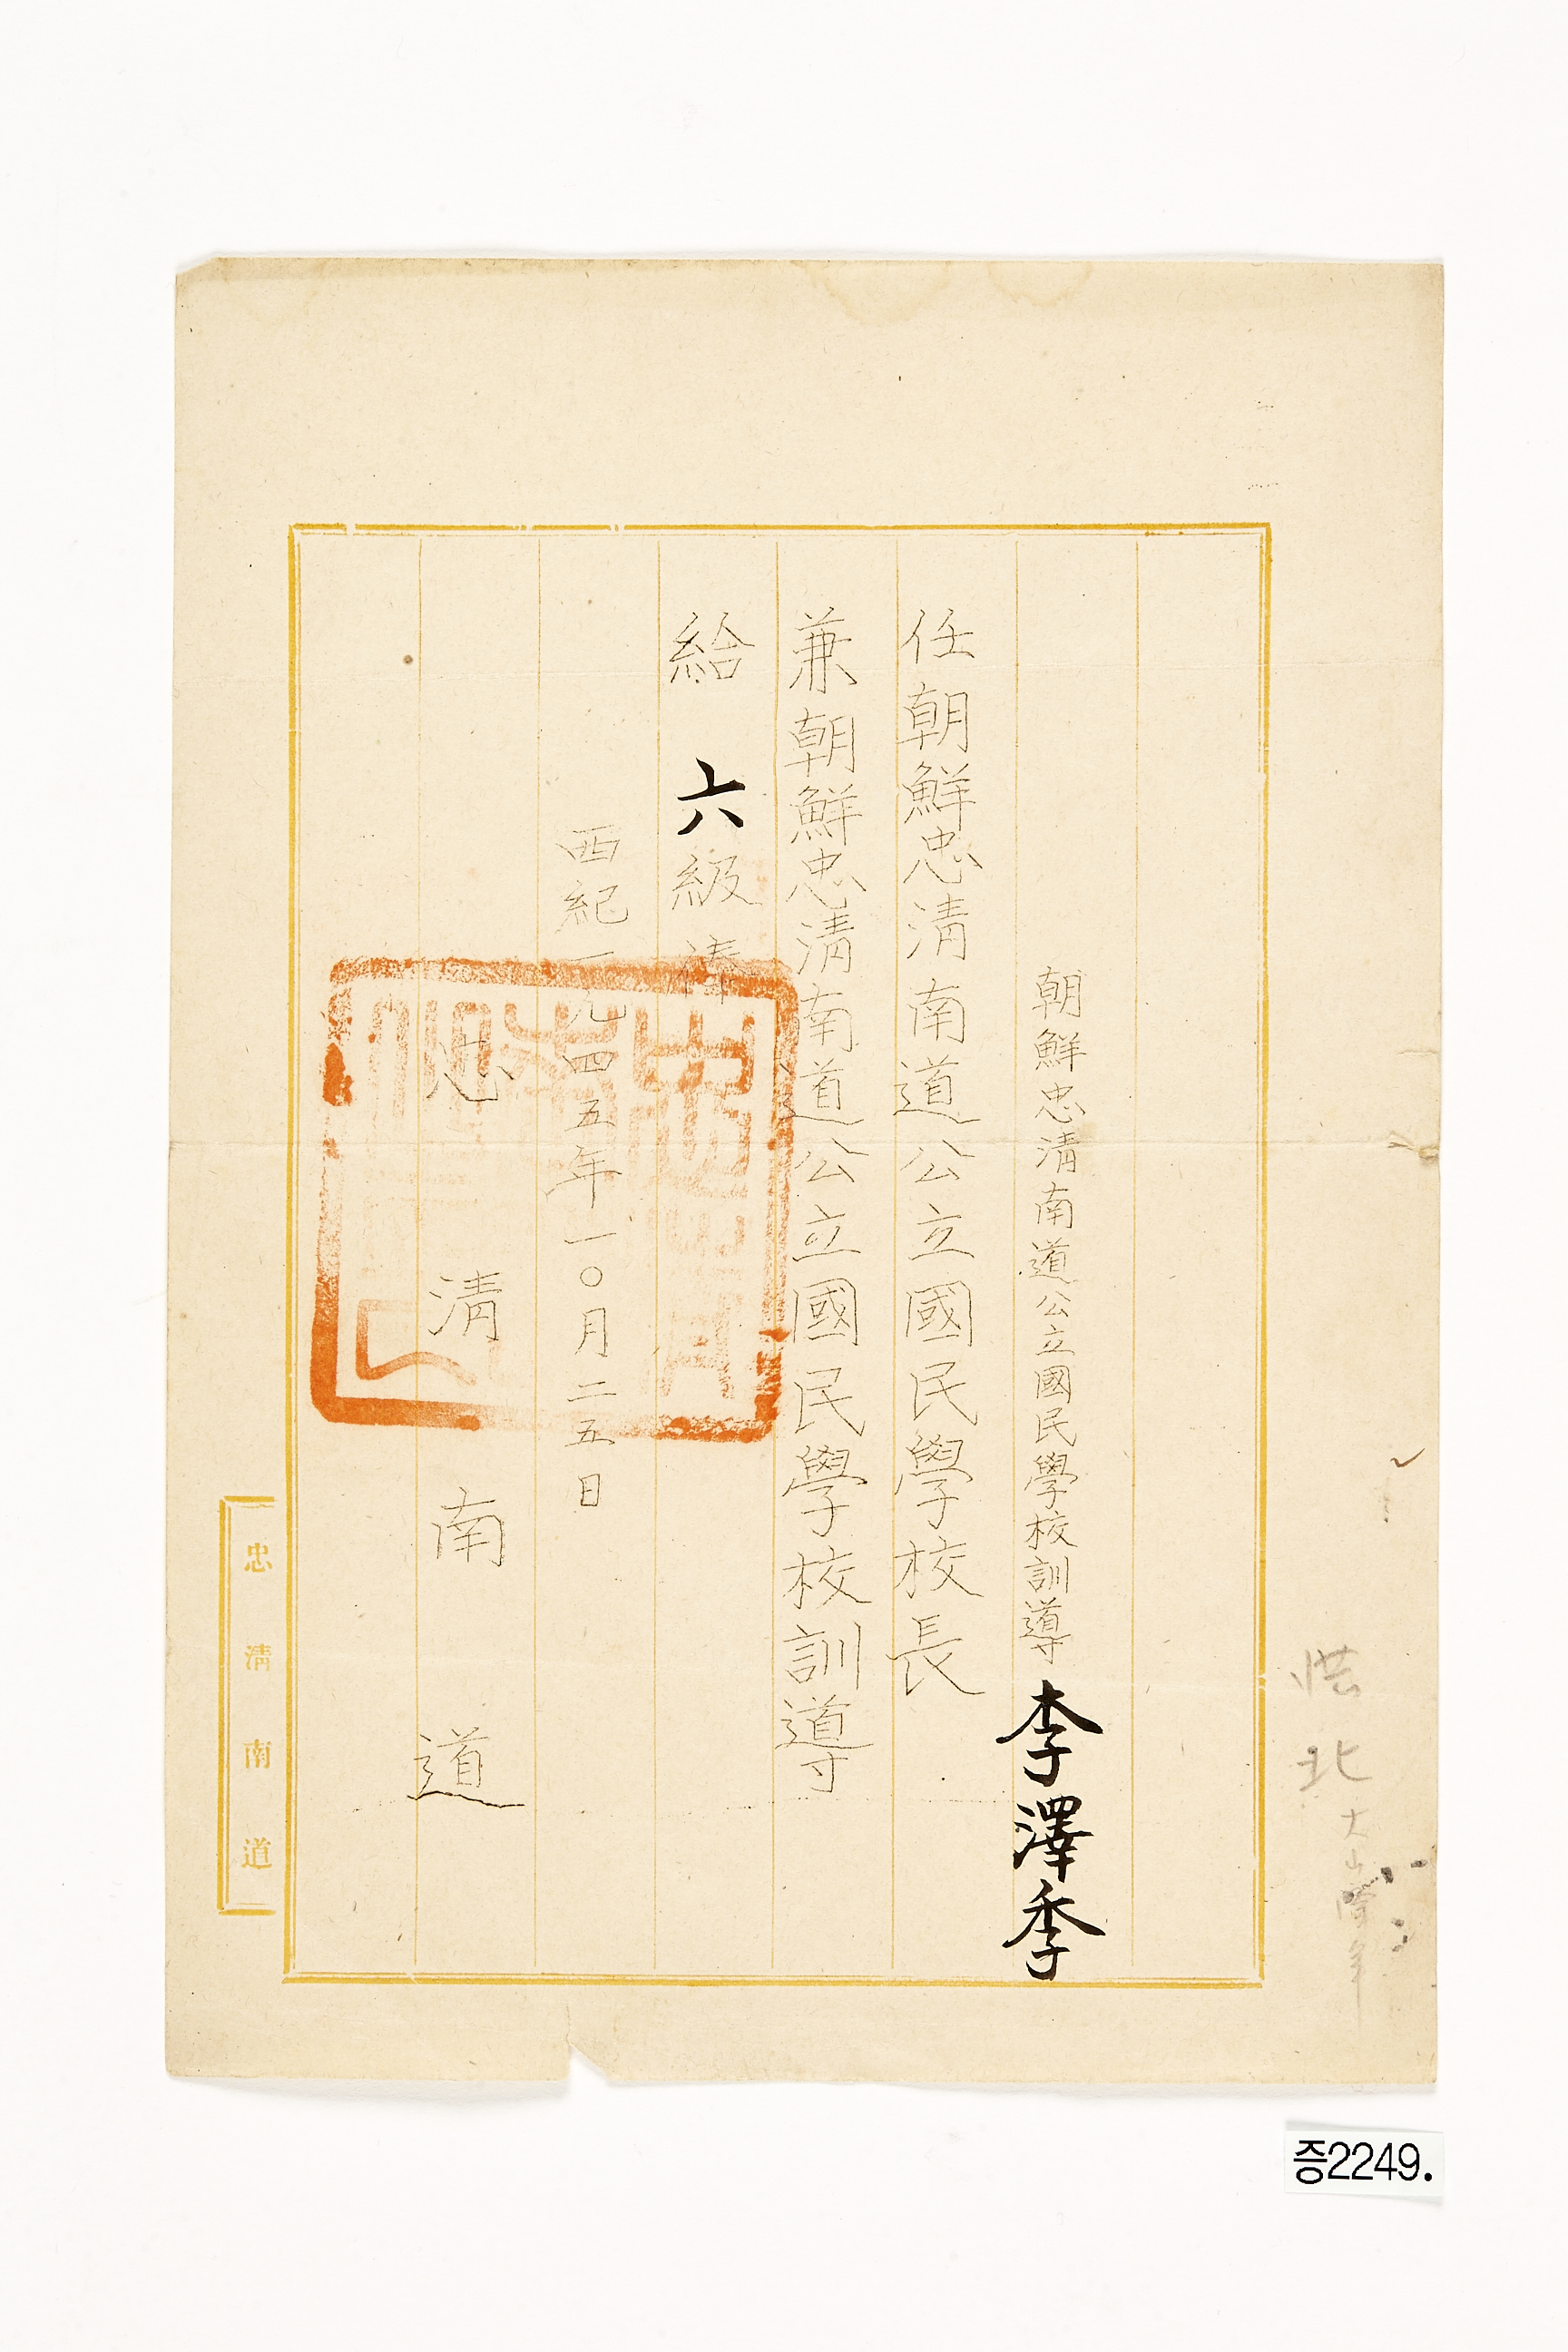 朝鮮忠淸南道公立國民學校訓導 李澤季
任朝鮮忠淸南道公立國民學校長
兼朝鮮忠淸南道公立國民學校訓導
給 六級俸
西紀一九四五年一〇月二五日
忠淸南道
忠淸南道
北
증2249.